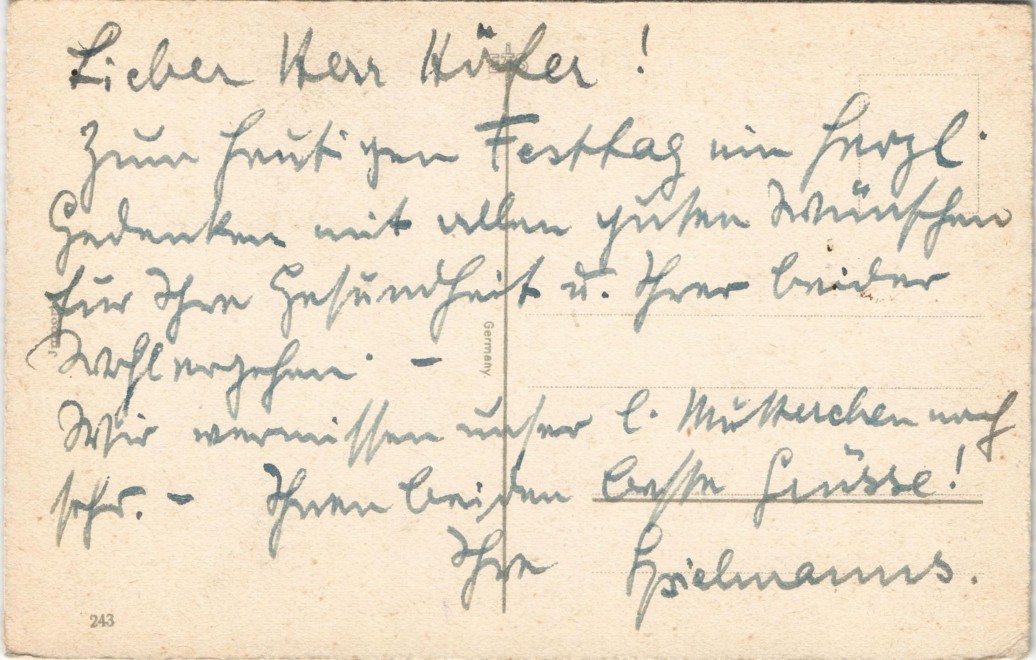 Lieber Herr Höfer!
Zum heutigen Festtag ein herzl.
Gedenken mit allen guten Wünschen
für Ihre Gesundheit u. Ihrer beider
Wohlergehen. –
Wir vermissen unser l. Mutterchen noch
sehr. – Ihnen beiden beste Grüsse!
Ihre Spielmanns.
Germany.
243